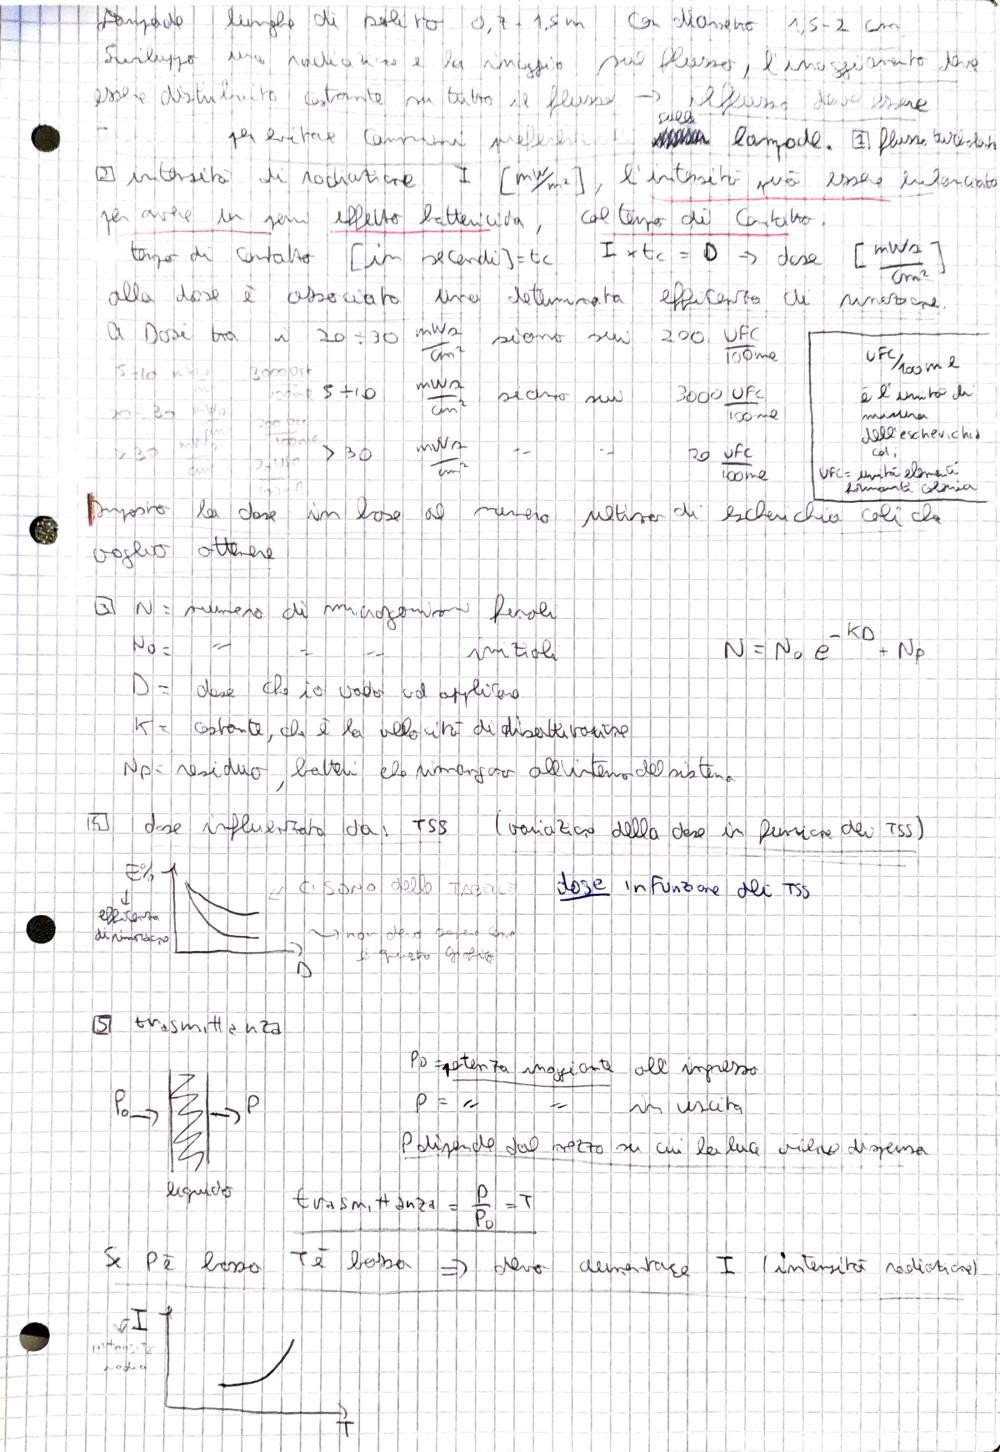 Lampade lunghe di solito 0,7 ÷ 1,5 m con diametro 1,5-2 cm.
Sviluppo una radiazione e la irraggio sul flusso, l'irraggiamento deve
essere distribuito costante su tutto il flusso → il flusso deve essere
per evitare cammini preferenziali sulle lampade. 1 flusso turbolento
2 intensità di radiazione I [mW/m²], l'intensità può essere bilanciata
per avere un effetto battericida, col tempo di contatto.
tempo di contatto [in secondi] = tc I × tc = D → dose [mWs/cm²]
alla dose è associato una determinata efficienza di rimozione.
a Dosi tra i 20 ÷ 30 mWs/cm² siamo sui 200 UFC/100ml
5 ÷ 10 mWs/cm² siamo sui 3000 UFC/100ml
> 30 mWs/cm² -- -- 20 UFC/100ml
UFC/100ml
è l'unità di
misura
dell'escherichia
coli
UFC = unità elementi
formanti colonia
Imposto la dose in base al numero ultimo di escherichia coli che
voglio ottenere
3 N = numero di microrganismi finali
N₀ = " " " iniziali N = N₀ e^-KD + Np
D = dose che io vado ad applicare
K = costante, che è la velocità di disattivazione
Np = residuo, batteri che rimangono all'interno del sistema
4 dose influenzata da: TSS (variazione della dose in funzione dei TSS)
E%
efficienza
di rimozione
D
ci sono delle tabelle dose in funzione dei TSS
→ non devo sapere
è questo grafico
5 trasmittanza
P₀ = potenza irraggiante all'ingresso
P₀ → → P
P = " " in uscita
P dipende dal mezzo su cui la luce viene dispersa
liquido
trasmittanza = P/P₀ = T
Se P è basso T è bassa ⇒ devo aumentare I (intensità radiazione)
I
intensità
T